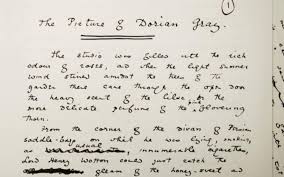 1
The Picture of Dorian Gray.
The studio was filled with the rich
odour of roses, and when the light summer
wind stirred amidst the trees of the
garden there came through the open door
the heavy scent of the lilac, or the
more delicate perfume of the flowering
thorn.
From the corner of the divan of Persian
saddle-bags on which he was lying, smoking,
as usual, innumerable cigarettes,
Lord Henry Wotton could just catch the
gleam of the honey-sweet and